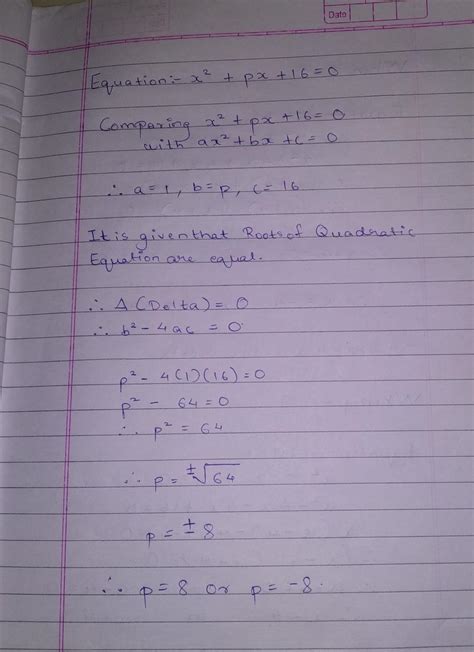 Date
Equation:- x² + px + 16 = 0
Comparing x² + px + 16 = 0
with ax² + bx + c = 0
∴ a = 1, b = p, c = 16
It is given that Roots of Quadratic
Equation are equal.
∴ Δ (Delta) = 0
∴ b² - 4ac = 0
p² - 4(1)(16) = 0
p² - 64 = 0
∴ p² = 64
∴ p = ±√64
p = ± 8
∴ p = 8 or p = -8.